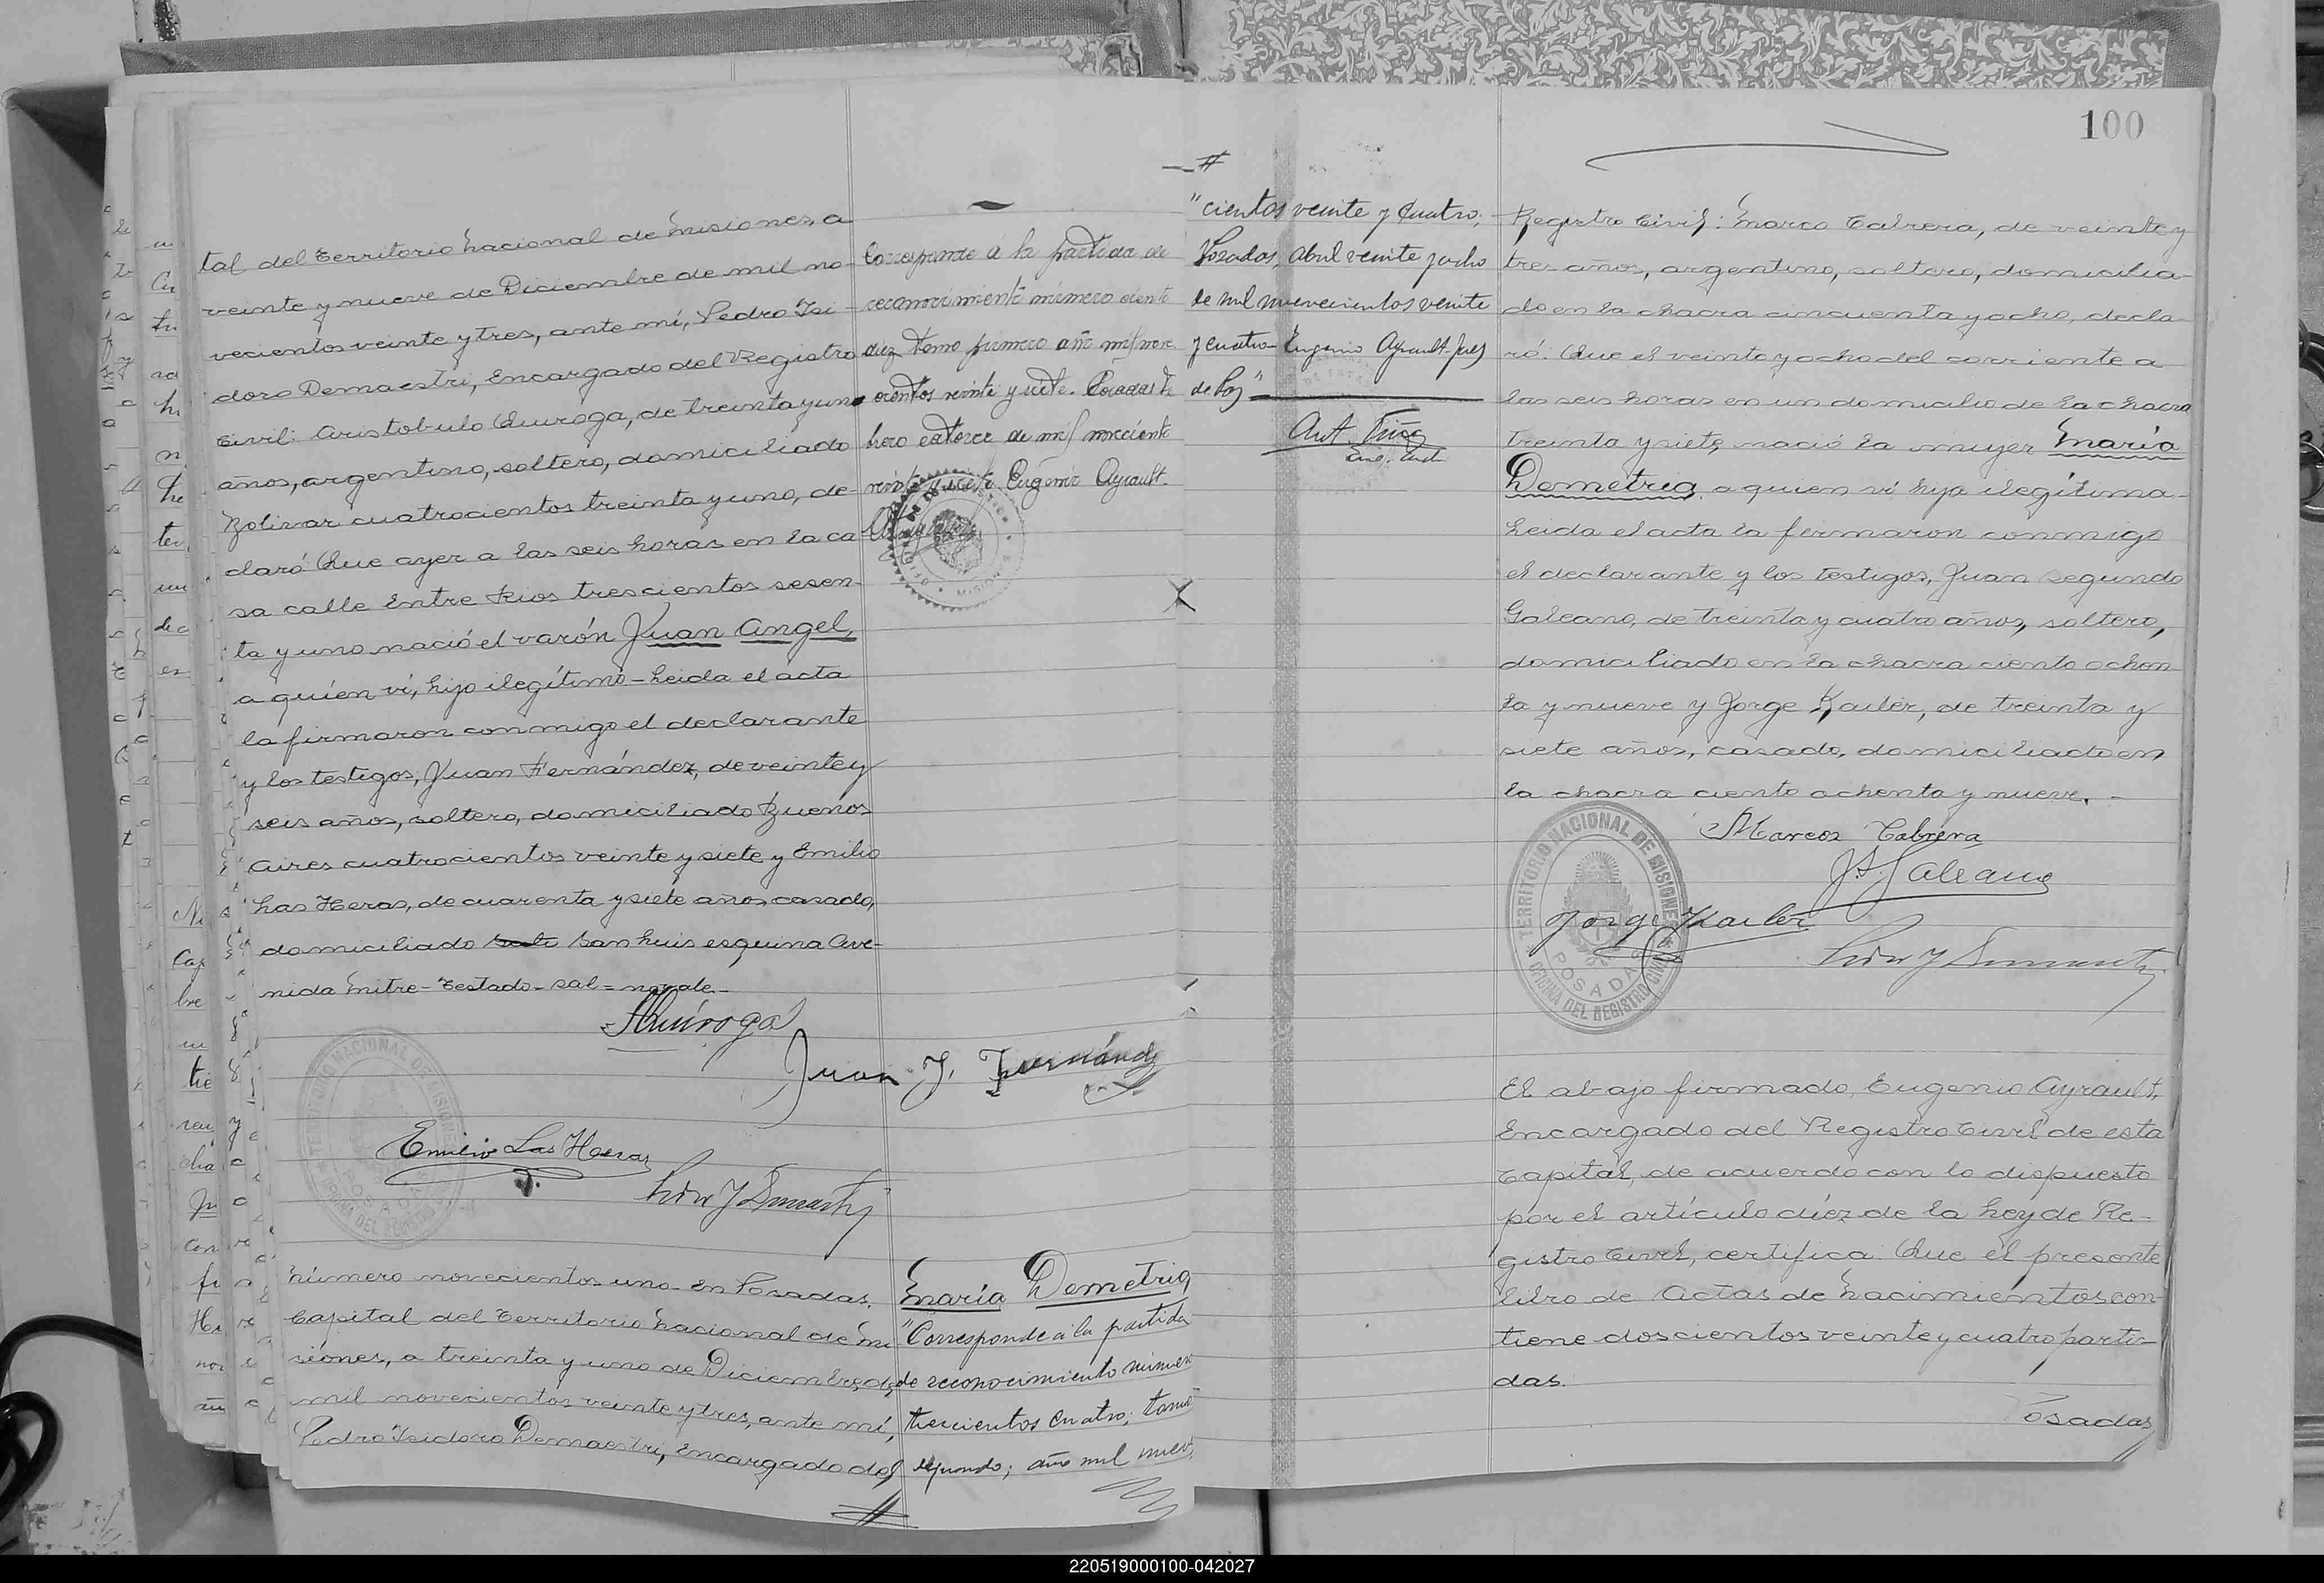 tal del Territorio Nacional de Misiones, a
veinte y nueve de Diciembre de mil no-
vecientos veinte y tres, ante mí, Pedro Isi-
doro Demaestri, Encargado del Registro
Civil: Aristobulo Quiroga, de treinta y un
años, argentino, soltero, domiciliado
Bolivar cuatrocientos treinta y uno, de-
claró: Que ayer a las seis horas en la ca-
sa calle Entre Rios trescientos sesen-
ta y uno nació el varón Juan Angel,
a quien vi, hijo ilegítimo - Leida el acta
la firmaron conmigo el declarante
y los testigos, Juan Fernández, de veinte y
seis años, soltero, domiciliado Buenos
Aires cuatrocientos veinte y siete y Emilio
Las Heras, de cuarenta y siete años, casado,
domiciliado San Luis esquina Ave-
nida Mitre - Testado - sal = no vale -
AQuiroga
Juan J. Fernández
Emilio Las Heras
TERRITORIO NACIONAL DE MISIONES
POSADAS
OFICINA DEL REGISTRO CIVIL
Corresponde á la partida de
reconocimiento número ciento
diez Tomo primero año mil nove
cientos veinte y siete. Posadas Fe
brero catorce de mil novecientos
veinte y siete Eugenio Ayrault.
MISIONES
Número novecientos uno - En Posadas,
Capital del Territorio Nacional de Mi-
siones, a treinta y uno de Diciembre de
mil novecientos veinte y tres, ante mí,
Pedro Isidoro Demaestri, Encargado del
María Demetria
"Corresponde á la partida
de reconocimiento número
trescientos cuatro; tomo
segundo; año mil nove
100
#
"cientos veinte y cuatro;
Posadas, Abril veinte y ocho
de mil nuevecientos veinte
y cuatro - Eugenio Ayrault - Juez
de Paz"
Registro Civil: Marco Cabrera, de veinte y
tres años, argentino, soltero, domicilia-
do en la chacra cincuenta y ocho, decla
ró: Que el veinte y ocho del corriente a
las seis horas en un domicilio de la chacra
treinta y siete, nació la mujer María
Demetria, a quien vi hija ilegítima -
Leida el acta la firmaron conmigo
el declarante y los testigos, Juan Segundo
Galeano, de treinta y cuatro años, soltero,
domiciliado en la chacra ciento ochen
ta y nueve y Jorge Kailer, de treinta y
siete años, casado, domiciliado en
la chacra ciento ochenta y nueve. -
Marcos Cabrera
J.S. Galeano
Jorge Kailer
TERRITORIO NACIONAL DE MISIONES
POSADAS
OFICINA DEL REGISTRO CIVIL
El abajo firmado, Eugenio Ayrault,
Encargado del Registro Civil de esta
Capital, de acuerdo con lo dispuesto
por el artículo diez de la Ley de Re-
gistro Civil, certifica: Que el presente
libro de Actas de Nacimientos con-
tiene doscientos veinte y cuatro parti-
das.
Posadas
220519000100-042027